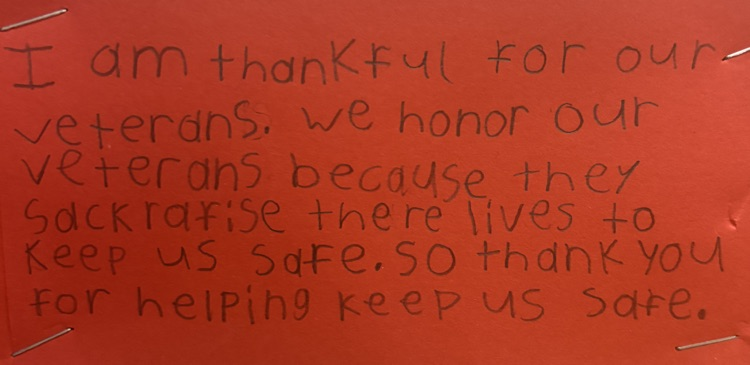 I am thankful for our
veterans. we honor our
veterans because they
sackrafise there lives to
keep us safe. so thank you
for helping keep us safe.